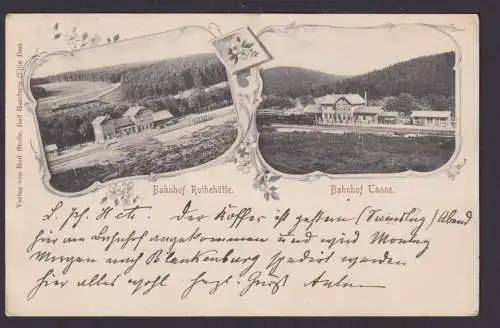 Verlag von Rud. Stolle, Bad Harzburg (Villa Das).
Bahnhof Rothehütte.
Bahnhof Tanne.
Der Koffer ist gestern (Samstag) Abend
hier am Bahnhof angekommen und wird Montag
Morgen nach Blankenburg spedirt werden
hier alles wohl herzl. Gruß